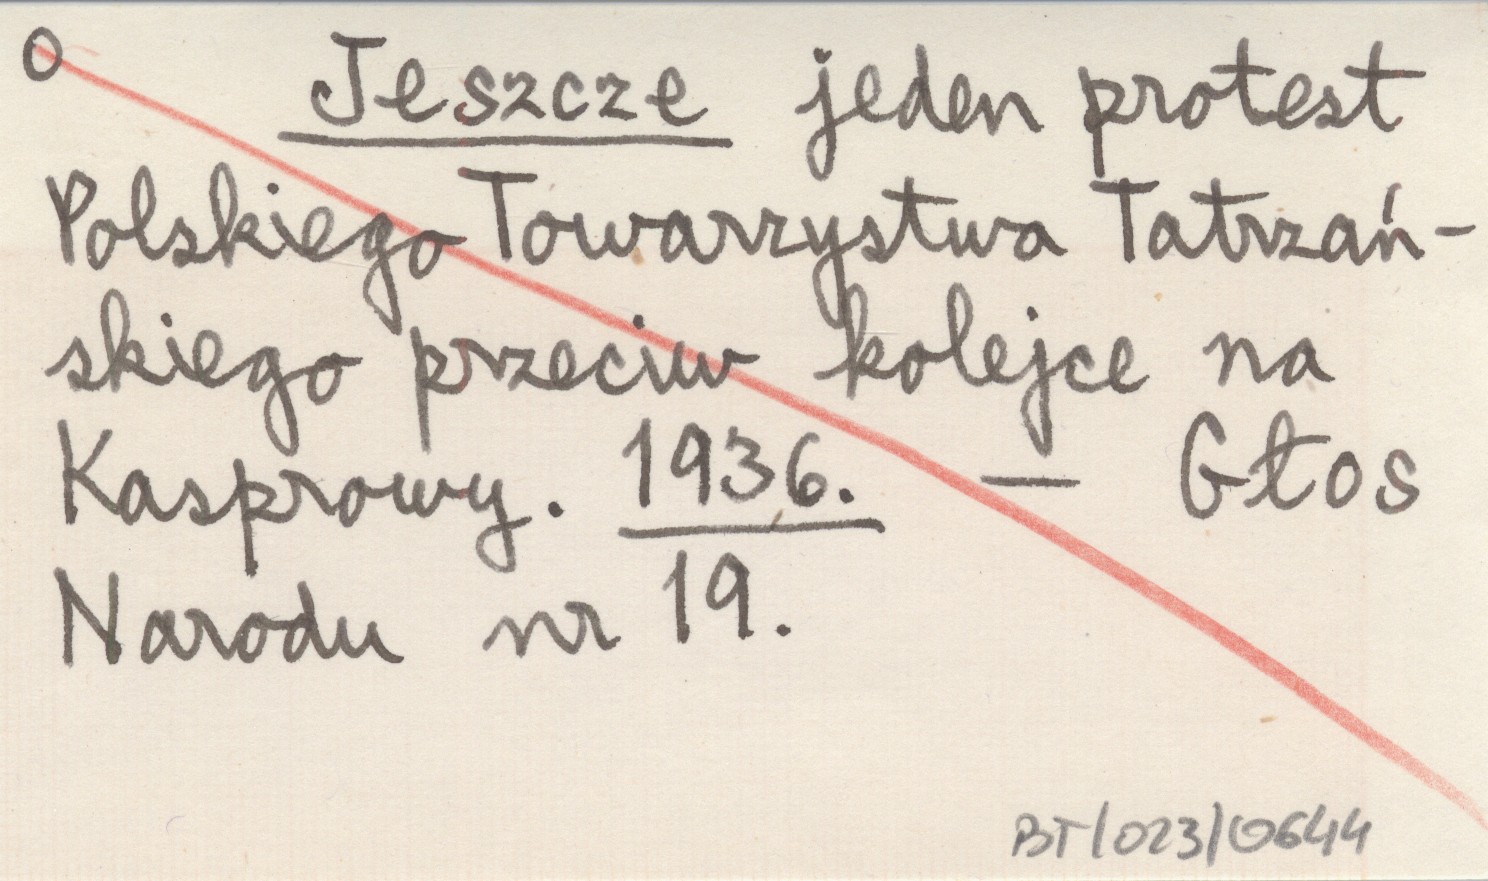 O Jeszcze jeden protest
Polskiego Towarzystwa Tatrzań-
skiego przeciw kolejce na
Kasprowy. 1936. — Głos
Narodu nr 19.
BT/023/0644